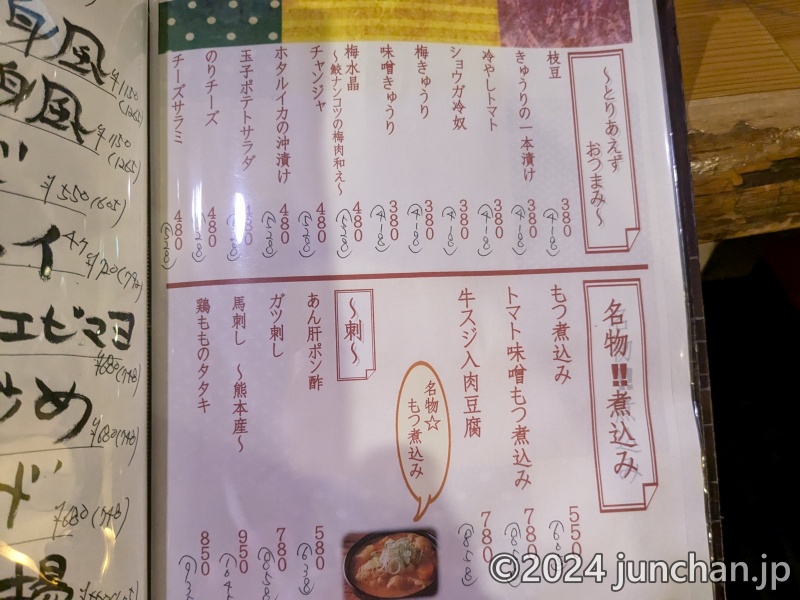 〜とりあえず
おつまみ〜
枝豆 380 (418)
きゅうりの一本漬け 380 (418)
冷やしトマト 380 (418)
ショウガ冷奴 380 (418)
梅きゅうり 380 (418)
味噌きゅうり 380 (418)
梅水晶 480 (528)
〜鮫ナンコツの梅肉和え〜
チャンジャ 480 (528)
ホタルイカの沖漬け 480 (528)
玉子ポテトサラダ 480 (528)
のりチーズ 480 (528)
チーズサラミ 480 (528)
名物!!煮込み
もつ煮込み 550
トマト味噌もつ煮込み 780 (858)
牛スジ入肉豆腐 780 (858)
名物☆
もつ煮込み
〜刺〜
あん肝ポン酢 580 (638)
ガツ刺し 780 (858)
馬刺し 〜熊本産〜 950
鶏もものタタキ 850
風 ¥1150 (1265)
風 ¥1150 (1265)
¥550 (605)
イ
エビマヨ ¥680 (748)
め ¥680 (748)
¥680 (748)
場
©2024 junchan.jp